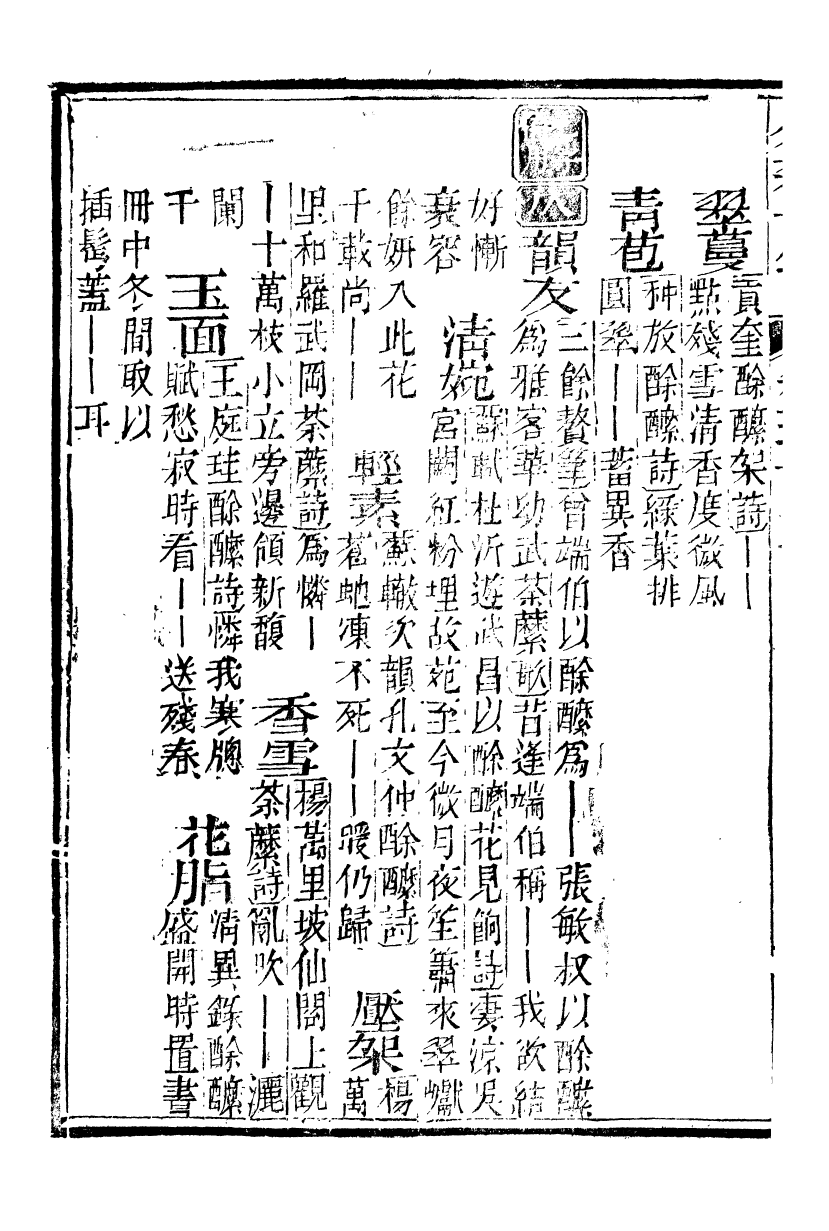 翠蔓
貢奎酴醾架詩丨丨
點殘雪清香度微風
青苞
种放酴醾詩綠葉排
圓翠丨丨蓄異香
韻友
三餘贅筆曾端伯以酴醾爲丨丨張敏叔以酴醾
爲雅客華幼武荼蘼歌昔逢端伯稱丨丨我欲結
好慚
衰容
清婉
蘇軾杜沂遊武昌以酴醾花見餉詩凄涼吳
宮闕紅粉埋故苑至今微月夜笙簫來翠巘
餘妍入此花
千載尚丨丨
輕素
蘇轍次韻孔文仲酴醾詩
蒼虬凍不死丨丨暖仍歸
壓架
楊
萬
里和羅武岡荼蘼詩爲憐丨
丨十萬枝小立旁邊領新馥
香雪
楊萬里坡仙閣上觀
荼蘼詩亂吹丨丨灑
闌
干
玉面
王庭珪酴醾詩憐我寒牕
賦愁寂時看丨丨送殘春
花脂
清異錄酴醾
盛開時置書
冊中冬間取以
插髻蓋丨丨耳